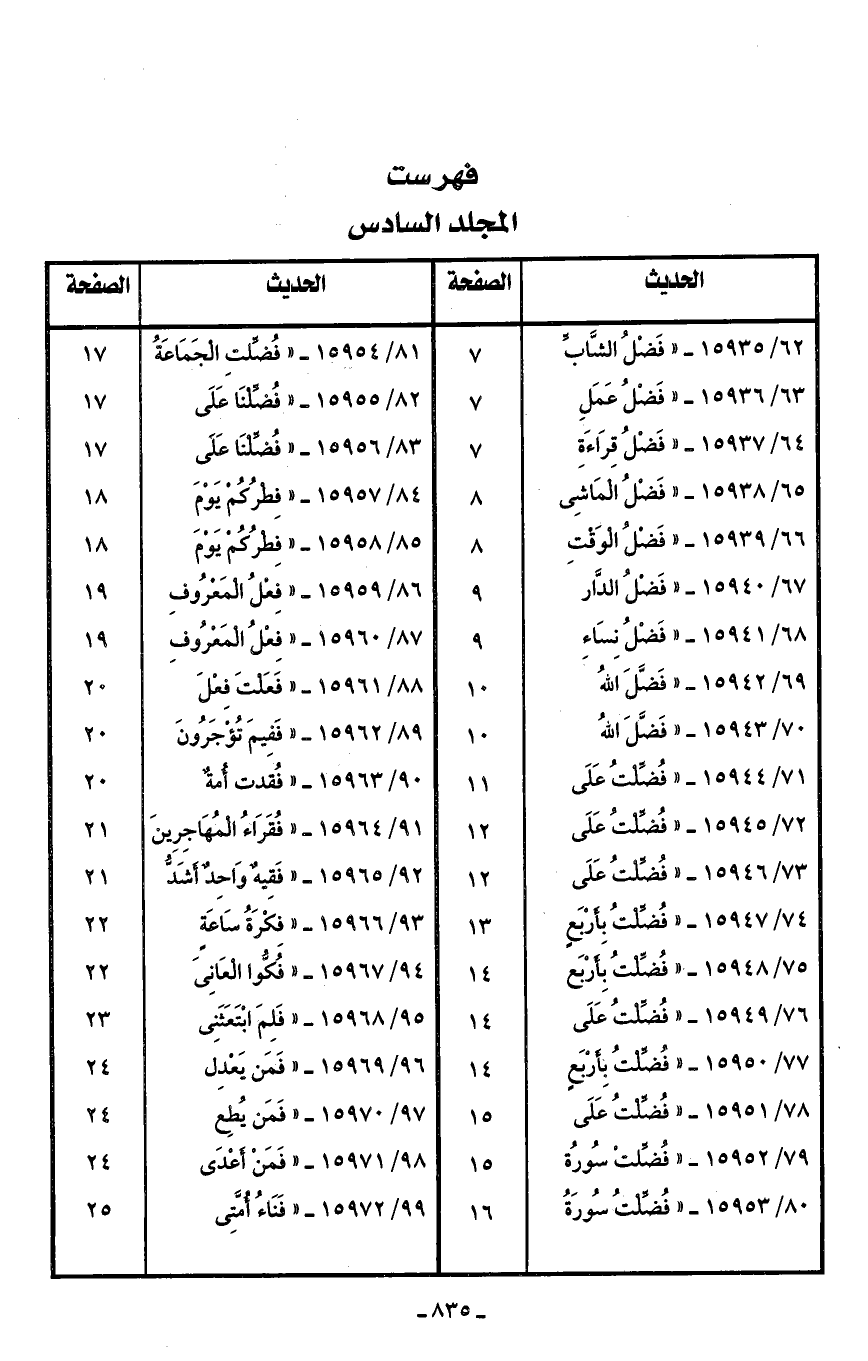 فهرست
المجلد السادس
الحديث | الصفحة | الحديث | الصفحة
١٥٩٣٥/٦٢ ـ « فَضْلُ الشَّابِّ | ٧ | ١٥٩٥٤/٨١ ـ « فُضِّلَتِ الْجَمَاعَةُ | ١٧
١٥٩٣٦/٦٣ ـ « فَضْلُ عَمَلِ | ٧ | ١٥٩٥٥/٨٢ ـ « فُضِّلْنَا عَلَى | ١٧
١٥٩٣٧/٦٤ ـ « فَضْلُ قِرَاءَةِ | ٧ | ١٥٩٥٦/٨٣ ـ « فُضِّلْنَا عَلَى | ١٧
١٥٩٣٨/٦٥ ـ « فَضْلُ الْمَاشِى | ٨ | ١٥٩٥٧/٨٤ ـ « فِطْرُكُمْ يَوْمَ | ١٨
١٥٩٣٩/٦٦ ـ « فَضْلُ الْوَقْتِ | ٨ | ١٥٩٥٨/٨٥ ـ « فِطْرُكُمْ يَوْمَ | ١٨
١٥٩٤٠/٦٧ ـ « فَضْلُ الدَّارِ | ٩ | ١٥٩٥٩/٨٦ ـ « فِعْلُ الْمَعْرُوفِ | ١٩
١٥٩٤١/٦٨ ـ « فَضْلُ نِسَاءِ | ٩ | ١٥٩٦٠/٨٧ ـ « فِعْلُ الْمَعْرُوفِ | ١٩
١٥٩٤٢/٦٩ ـ « فَضَّلَ اللهُ | ١٠ | ١٥٩٦١/٨٨ ـ « فَعَلْتَ فِعْلَ | ٢٠
١٥٩٤٣/٧٠ ـ « فَضَّلَ اللهُ | ١٠ | ١٥٩٦٢/٨٩ ـ « فَفِيمَ تُؤْجَرُونَ | ٢٠
١٥٩٤٤/٧١ ـ « فُضِّلْتُ عَلَى | ١١ | ١٥٩٦٣/٩٠ ـ « فُقدت أُمةٌ | ٢٠
١٥٩٤٥/٧٢ ـ « فُضِّلْتُ عَلَى | ١٢ | ١٥٩٦٤/٩١ ـ « فُقَرَاءُ الْمُهَاجِرِينَ | ٢١
١٥٩٤٦/٧٣ ـ « فُضِّلْتُ عَلَى | ١٢ | ١٥٩٦٥/٩٢ ـ « فَقِيهٌ وَاحِدٌ أَشَدُّ | ٢١
١٥٩٤٧/٧٤ ـ « فُضِّلْتُ بِأَرْبَعٍ | ١٣ | ١٥٩٦٦/٩٣ ـ « فِكْرَةُ سَاعَةٍ | ٢٢
١٥٩٤٨/٧٥ ـ « فُضِّلْتُ بِأَرْبَعٍ | ١٤ | ١٥٩٦٧/٩٤ ـ « فُكُّوا الْعَانِىَ | ٢٢
١٥٩٤٩/٧٦ ـ « فُضِّلْتُ عَلَى | ١٤ | ١٥٩٦٨/٩٥ ـ « فَلِمَ ابْتَعَثَنِى | ٢٣
١٥٩٥٠/٧٧ ـ « فُضِّلْتُ بِأَرْبَعٍ | ١٤ | ١٥٩٦٩/٩٦ ـ « فَمَن يَعْدِل | ٢٤
١٥٩٥١/٧٨ ـ « فُضِّلْتُ عَلَى | ١٥ | ١٥٩٧٠/٩٧ ـ « فَمَن يُطِع | ٢٤
١٥٩٥٢/٧٩ ـ « فُضِّلَتْ سُورَةُ | ١٥ | ١٥٩٧١/٩٨ ـ « فَمَنْ أَعْدَى | ٢٤
١٥٩٥٣/٨٠ ـ « فُضِّلَتْ سُورَةُ | ١٦ | ١٥٩٧٢/٩٩ ـ « فَنَاءُ أُمَّتِى | ٢٥
ـ ٨٣٥ ـ